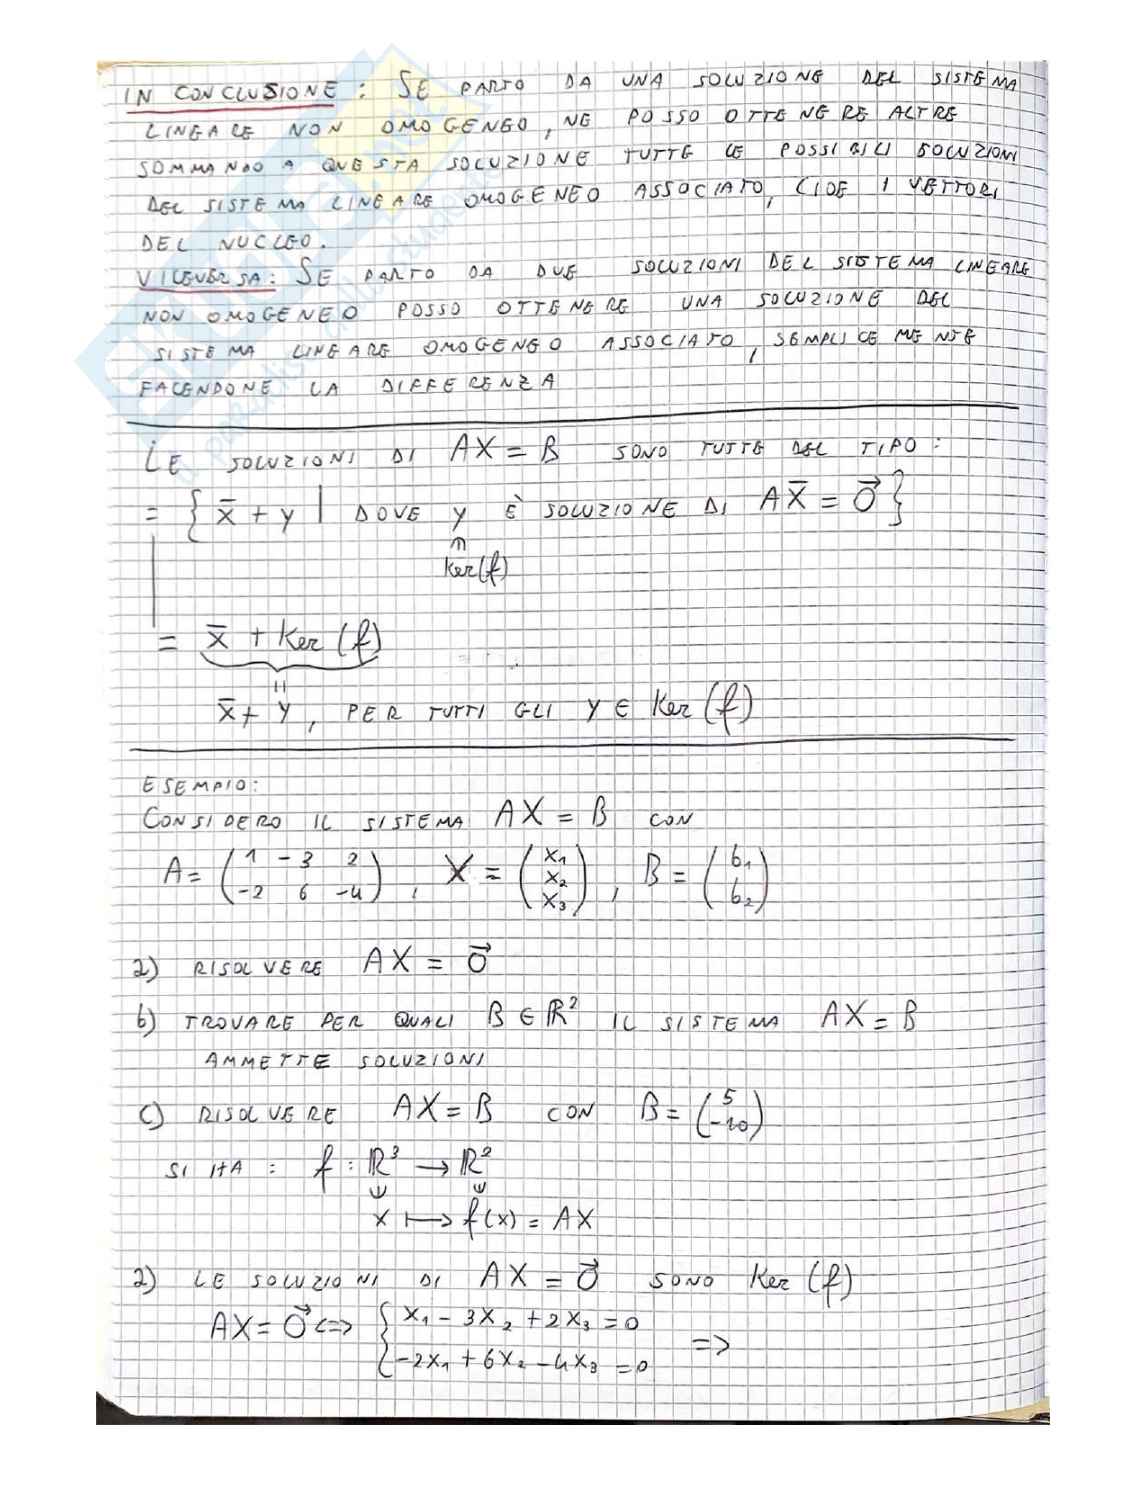 IN CONCLUSIONE : SE PARTO DA UNA SOLUZIONE DEL SISTEMA
LINEARE NON OMOGENEO, NE POSSO OTTENERE ALTRE
SOMMANDO A QUESTA SOLUZIONE TUTTE LE POSSIBILI SOLUZIONI
DEL SISTEMA LINEARE OMOGENEO ASSOCIATO, CIOE I VETTORI
DEL NUCLEO.
VICEVERSA: SE PARTO DA DUE SOLUZIONI DEL SISTEMA LINEARE
NON OMOGENEO POSSO OTTENERE UNA SOLUZIONE DEL
SISTEMA LINEARE OMOGENEO ASSOCIATO, SEMPLICEMENTE
FACENDONE LA DIFFERENZA
LE SOLUZIONI DI AX = B SONO TUTTE DEL TIPO :
= { x̄ + y | DOVE y È SOLUZIONE DI AX̄ = 0⃗ }
⇑
Ker(f)
= x̄ + Ker (f)
=
x̄ + y , PER TUTTI GLI y ∈ Ker (f)
ESEMPIO:
CONSIDERO IL SISTEMA AX = B CON
A = (1 -3 2 / -2 6 -4) , X = (x₁ / x₂ / x₃) , B = (b₁ / b₂)
a) RISOLVERE AX = 0⃗
b) TROVARE PER QUALI B ∈ ℝ² IL SISTEMA AX = B
AMMETTE SOLUZIONI
c) RISOLVERE AX = B CON B = (5 / -10)
SI HA : f : ℝ³ → ℝ²
x ↦ f(x) = AX
a) LE SOLUZIONI DI AX = 0⃗ SONO Ker (f)
AX = 0⃗ <=> { x₁ - 3x₂ + 2x₃ = 0
-2x₁ + 6x₂ - 4x₃ = 0 =>